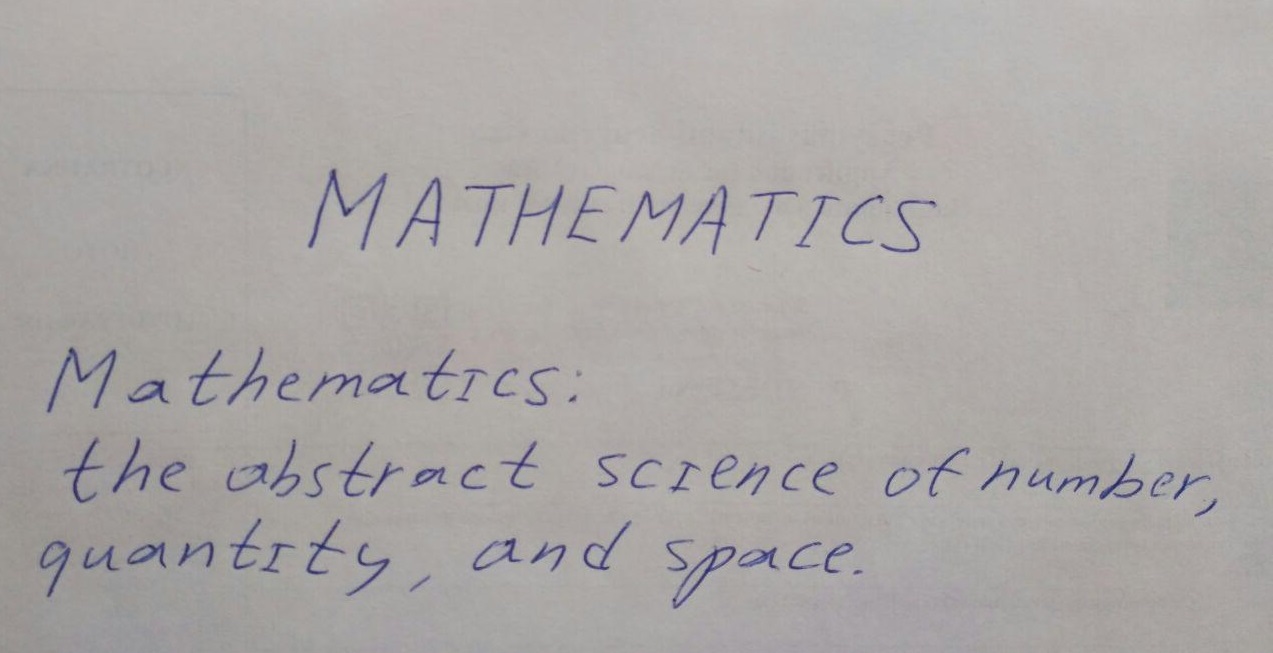 MATHEMATICS
Mathematics:
the abstract science of number,
quantity, and space.